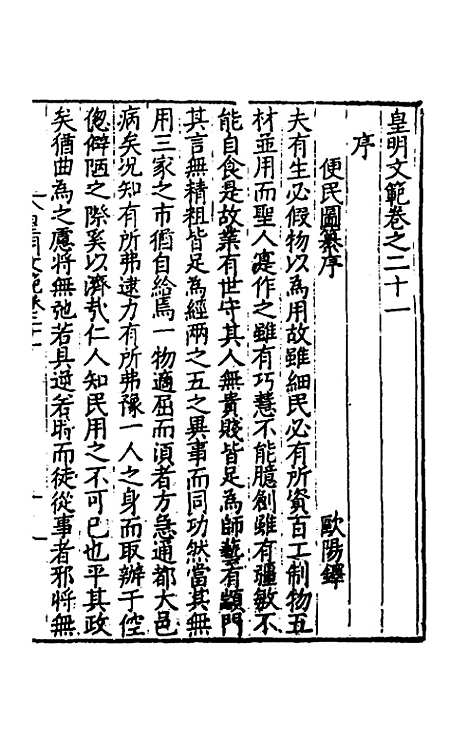 皇明文範卷之二十一
序
便民圖纂序 歐陽鐸
夫有生必假物以為用故雖細民必有所資百工制物五
材並用而聖人寔作之雖有巧慧不能臆創雖有彊敏不
能自食是故業有世守其人無貴賤皆足為師藝有顓門
其言無精粗皆足為經兩之五之異事而同功然當其無
用三家之市猶自給焉一物適屈而湏者方急通都大邑
病矣况知有所弗逮方有所弗豫一人之身而取辦于倥
偬僻陋之際奚以濟㢤仁人知民用之不可已也平其政
矣猶曲為之慮將無弛若具逆若時而徒從事者邪將無